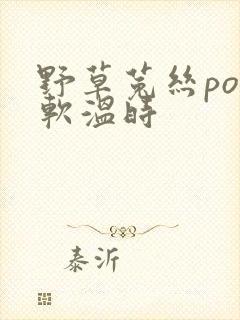 野草菟丝po
軟温时
泰沂